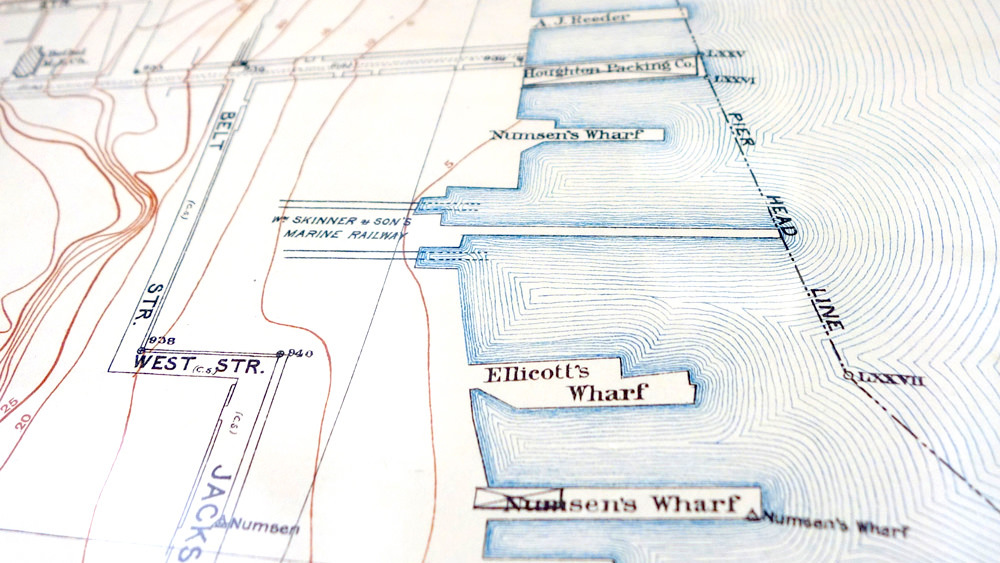 STR.
A. J. Reeder
LXXV
939
939
Houghton Packing Co.
LXXVI
BELT
PIER
Numsen's Wharf
5
(C S)
HEAD
Wm SKINNER & SON'S
MARINE RAILWAY
STR.
LINE
938
940
WEST (C.S.) STR.
Ellicott's
Wharf
LXXVII
25
20
(C S)
JACKS
Numsen's Wharf
Numsen
Numsen's Wharf